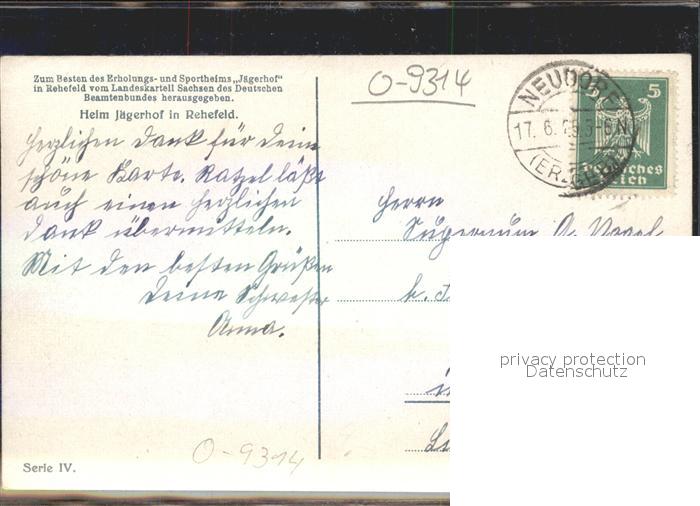 Zum Besten des Erholungs- und Sportheims „Jägerhof“
in Rehefeld vom Landeskartell Sachsen des Deutschen
Beamtenbundes herausgegeben.
Heim Jägerhof in Rehefeld.
Herzlichen Dank für Deine
schöne Karte. Ratzel läßt
auch einen herzlichen
Dank übermitteln.
Mit den besten Grüßen
Deine Schwester
Anna.
Serie IV.
O-9314
O-9314
NEUDORF
17. 6. 25. 5-6 N
(ERZGEB.)
5
5
Deutsches
Reich
Herrn
A. Vogel
privacy protection
Datenschutz